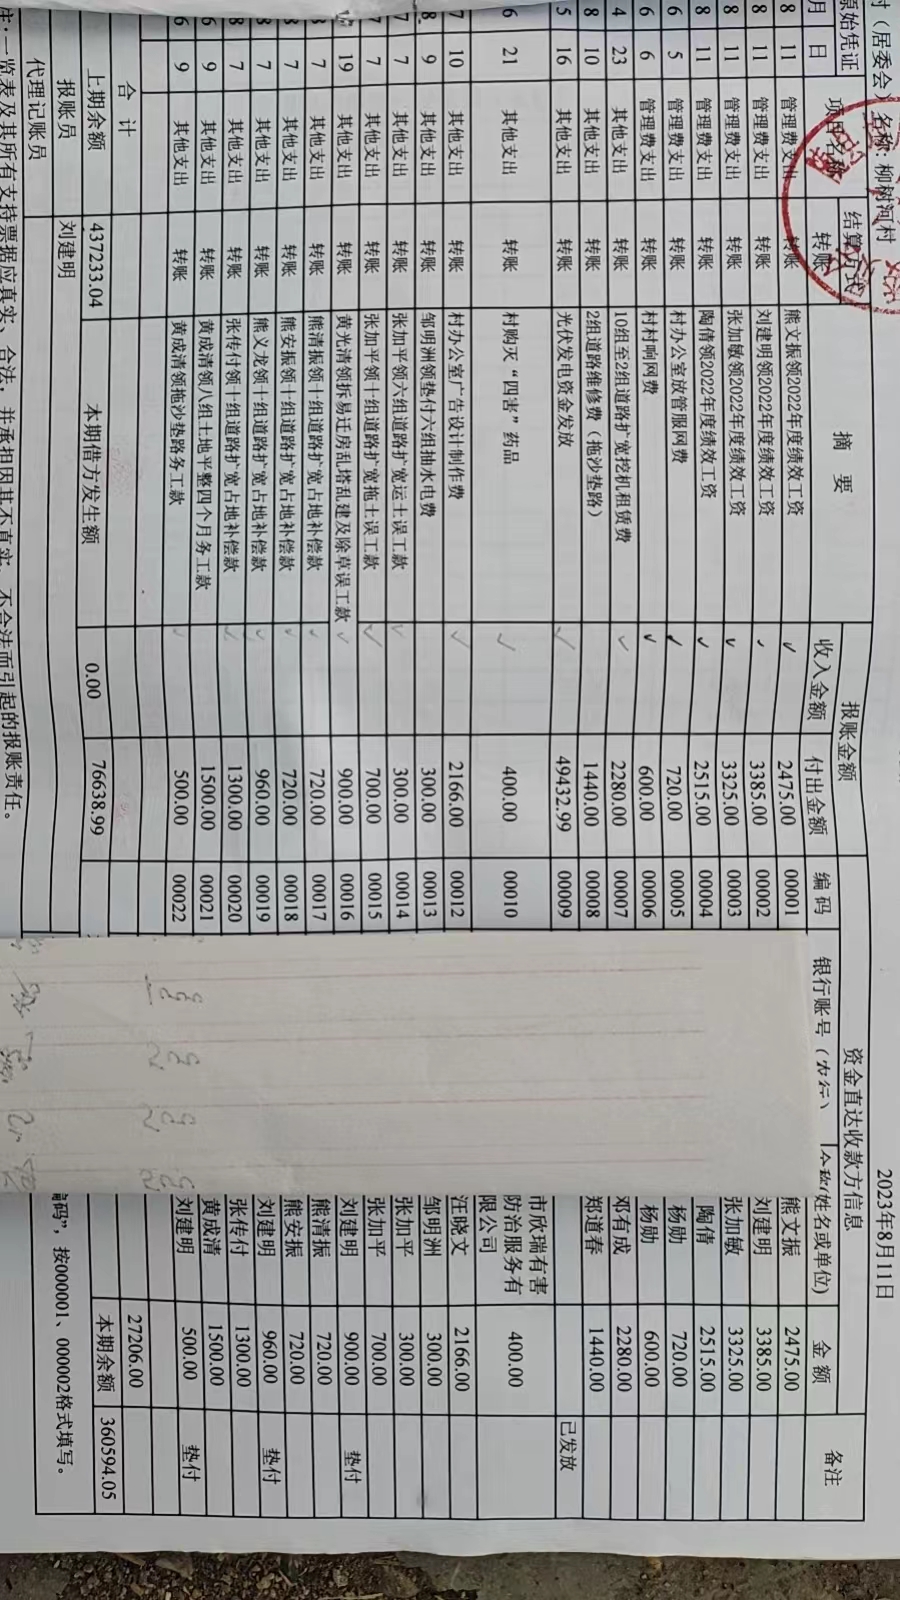 村（居委会）名称: 柳树河村
2023年8月11日
原始凭证 项目名称 结算方式 摘 要 报账金额 编 码 资金直达收款方信息 备注
月 日 转账 收入金额 付出金额 银行账号（农行） (姓名或单位) 金 额
8 11 管理费支出 转账 熊文振领2022年度绩效工资 ✓ 2475.00 00001 熊文振 2475.00
8 11 管理费支出 转账 刘建明领2022年度绩效工资 ✓ 3385.00 00002 刘建明 3385.00
8 11 管理费支出 转账 张加敏领2022年度绩效工资 ✓ 3325.00 00003 张加敏 3325.00
8 11 管理费支出 转账 陶倩领2022年度绩效工资 ✓ 2515.00 00004 陶倩 2515.00
6 5 管理费支出 转账 村办公室放管服网费 ✓ 720.00 00005 杨勋 720.00
6 6 管理费支出 转账 村村响网费 ✓ 600.00 00006 杨勋 600.00
4 23 其他支出 转账 10组至2组道路扩宽挖机租赁费 ✓ 2280.00 00007 邓有成 2280.00
8 10 其他支出 转账 2组道路维修费（拖沙垫路） 1440.00 00008 郑道春 1440.00
5 16 其他支出 转账 光伏发电资金发放 ✓ 49432.99 00009 已发放
6 21 其他支出 转账 村购灭“四害”药品 ✓ 400.00 00010 市欣瑞有害防治服务有限公司 400.00
7 10 其他支出 转账 村办公室广告设计制作费 ✓ 2166.00 00012 汪晓文 2166.00
8 9 其他支出 转账 邹明洲领垫付六组抽水电费 300.00 00013 邹明洲 300.00
7 7 其他支出 转账 张加平领六组道路扩宽运土误工款 ✓ 300.00 00014 张加平 300.00
7 7 其他支出 转账 张加平领十组道路扩宽拖土误工款 ✓ 700.00 00015 张加平 700.00
19 其他支出 转账 黄光清领拆易迁房乱搭乱建及除草误工款 ✓ 900.00 00016 刘建明 900.00 垫付
7 其他支出 转账 熊清振领十组道路扩宽占地补偿款 ✓ 720.00 00017 熊清振 720.00
7 其他支出 转账 熊安振领十组道路扩宽占地补偿款 ✓ 720.00 00018 熊安振 720.00
7 其他支出 转账 熊义龙领十组道路扩宽占地补偿款 ✓ 960.00 00019 刘建明 960.00 垫付
8 7 其他支出 转账 张传付领十组道路扩宽占地补偿款 ✓ 1300.00 00020 张传付 1300.00
6 9 其他支出 转账 黄成清领八组土地平整四个月务工款 1500.00 00021 黄成清 1500.00
6 9 其他支出 转账 黄成清领拖沙垫路务工款 ✓ 500.00 00022 刘建明 500.00 垫付
合 计 27206.00
上期余额 437233.04 本期借方发生额 0.00 76638.99 本期余额 360594.05
报账员 刘建明
代理记账员
编码”，按000001、000002格式填写。
注:一览表及其所有支持票据应真实、合法，并承担因其不真实、不合法而引起的报账责任。